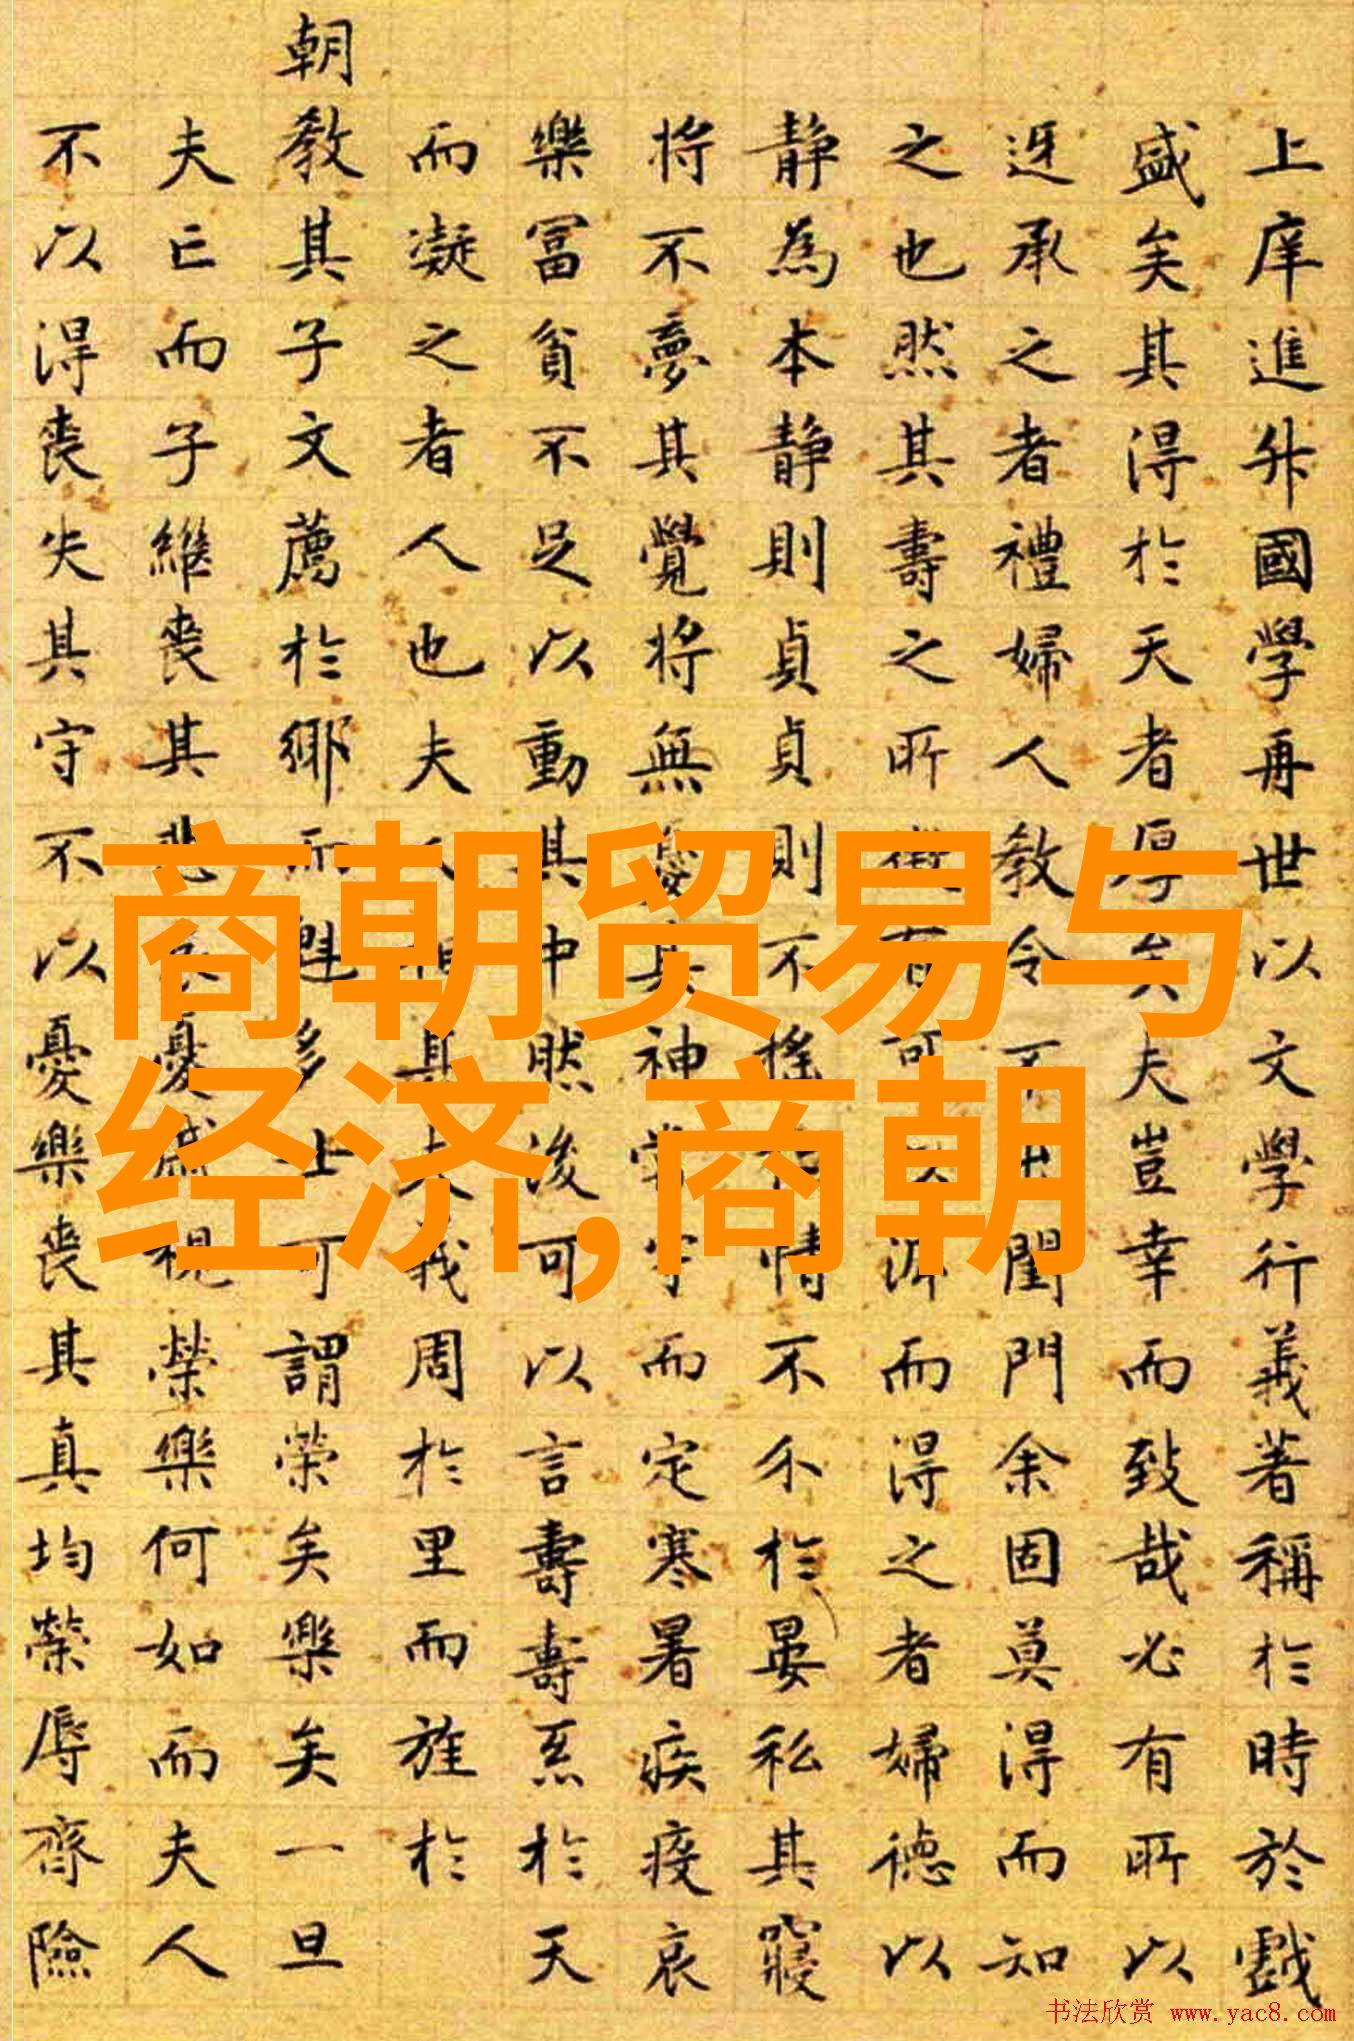 上庠進升國學再世以文學行義著稱於時於戲
盛矣其得於天者厚矣夫豈幸而致哉必有所以
迓承之者禮婦人教令不出閨門余固莫得而知
之也然其壽之所有可而得之者婦德以
静為本静則貞貞則不搖情不尒於晏私其寢
将不夢其覺将無憂其神常守而定寒暑疾疫哀
樂冨貧不足以動其中然後可以言壽壽系於天
而凝之者人也夫人相其夫義周於里而旌於
朝教其子文薦於鄉而魁多士可謂榮矣樂矣一旦
夫亡而子継喪其悲哀憂戚視榮樂何如而夫人
不以得喪失其守不以憂樂喪其真均榮辱齊險
商朝贸易与
经济,商朝
书法欣赏 www.yac8.com